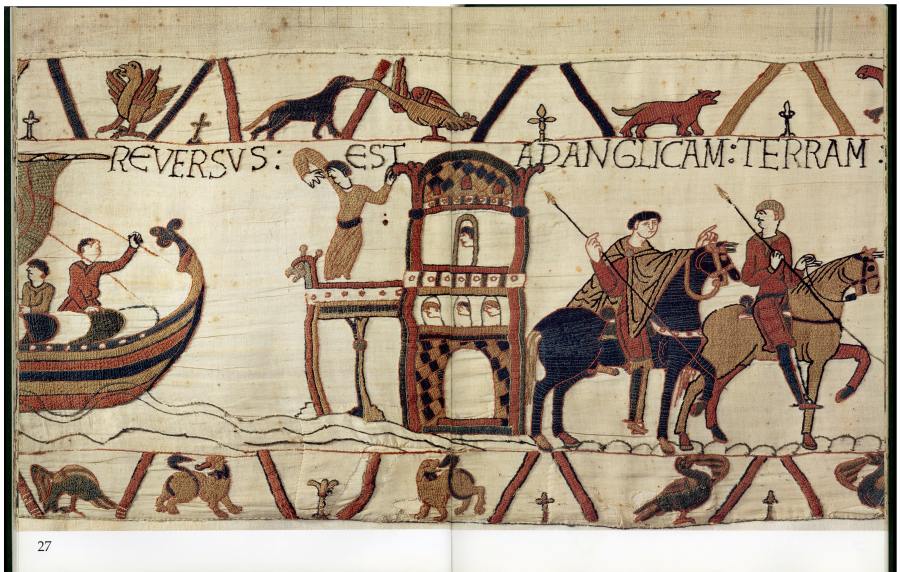 REVERSVS: EST ADANGLICAM:TERRAM:
27